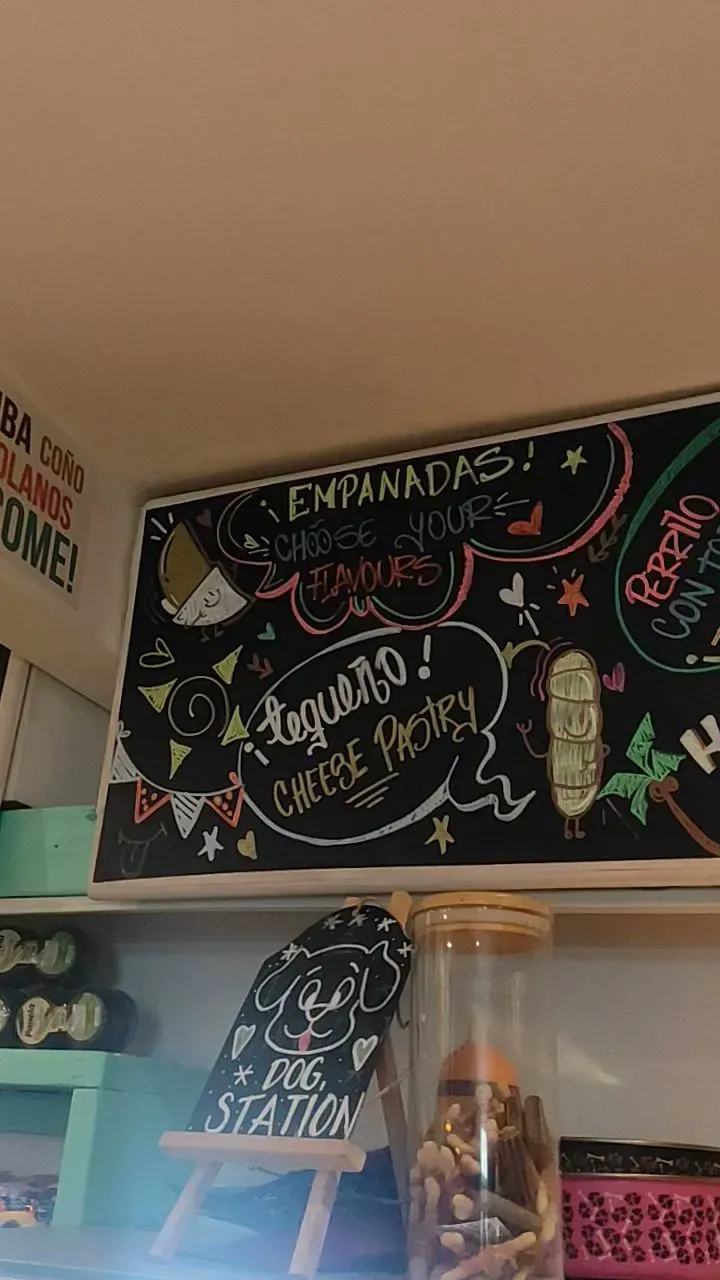 COÑO
OLANOS
COME!
¡EMPANADAS!
CHOOSE YOUR
FLAVOURS
¡tequeño!
CHEESE PASTRY
PERRITO
CON
DOG
STATION